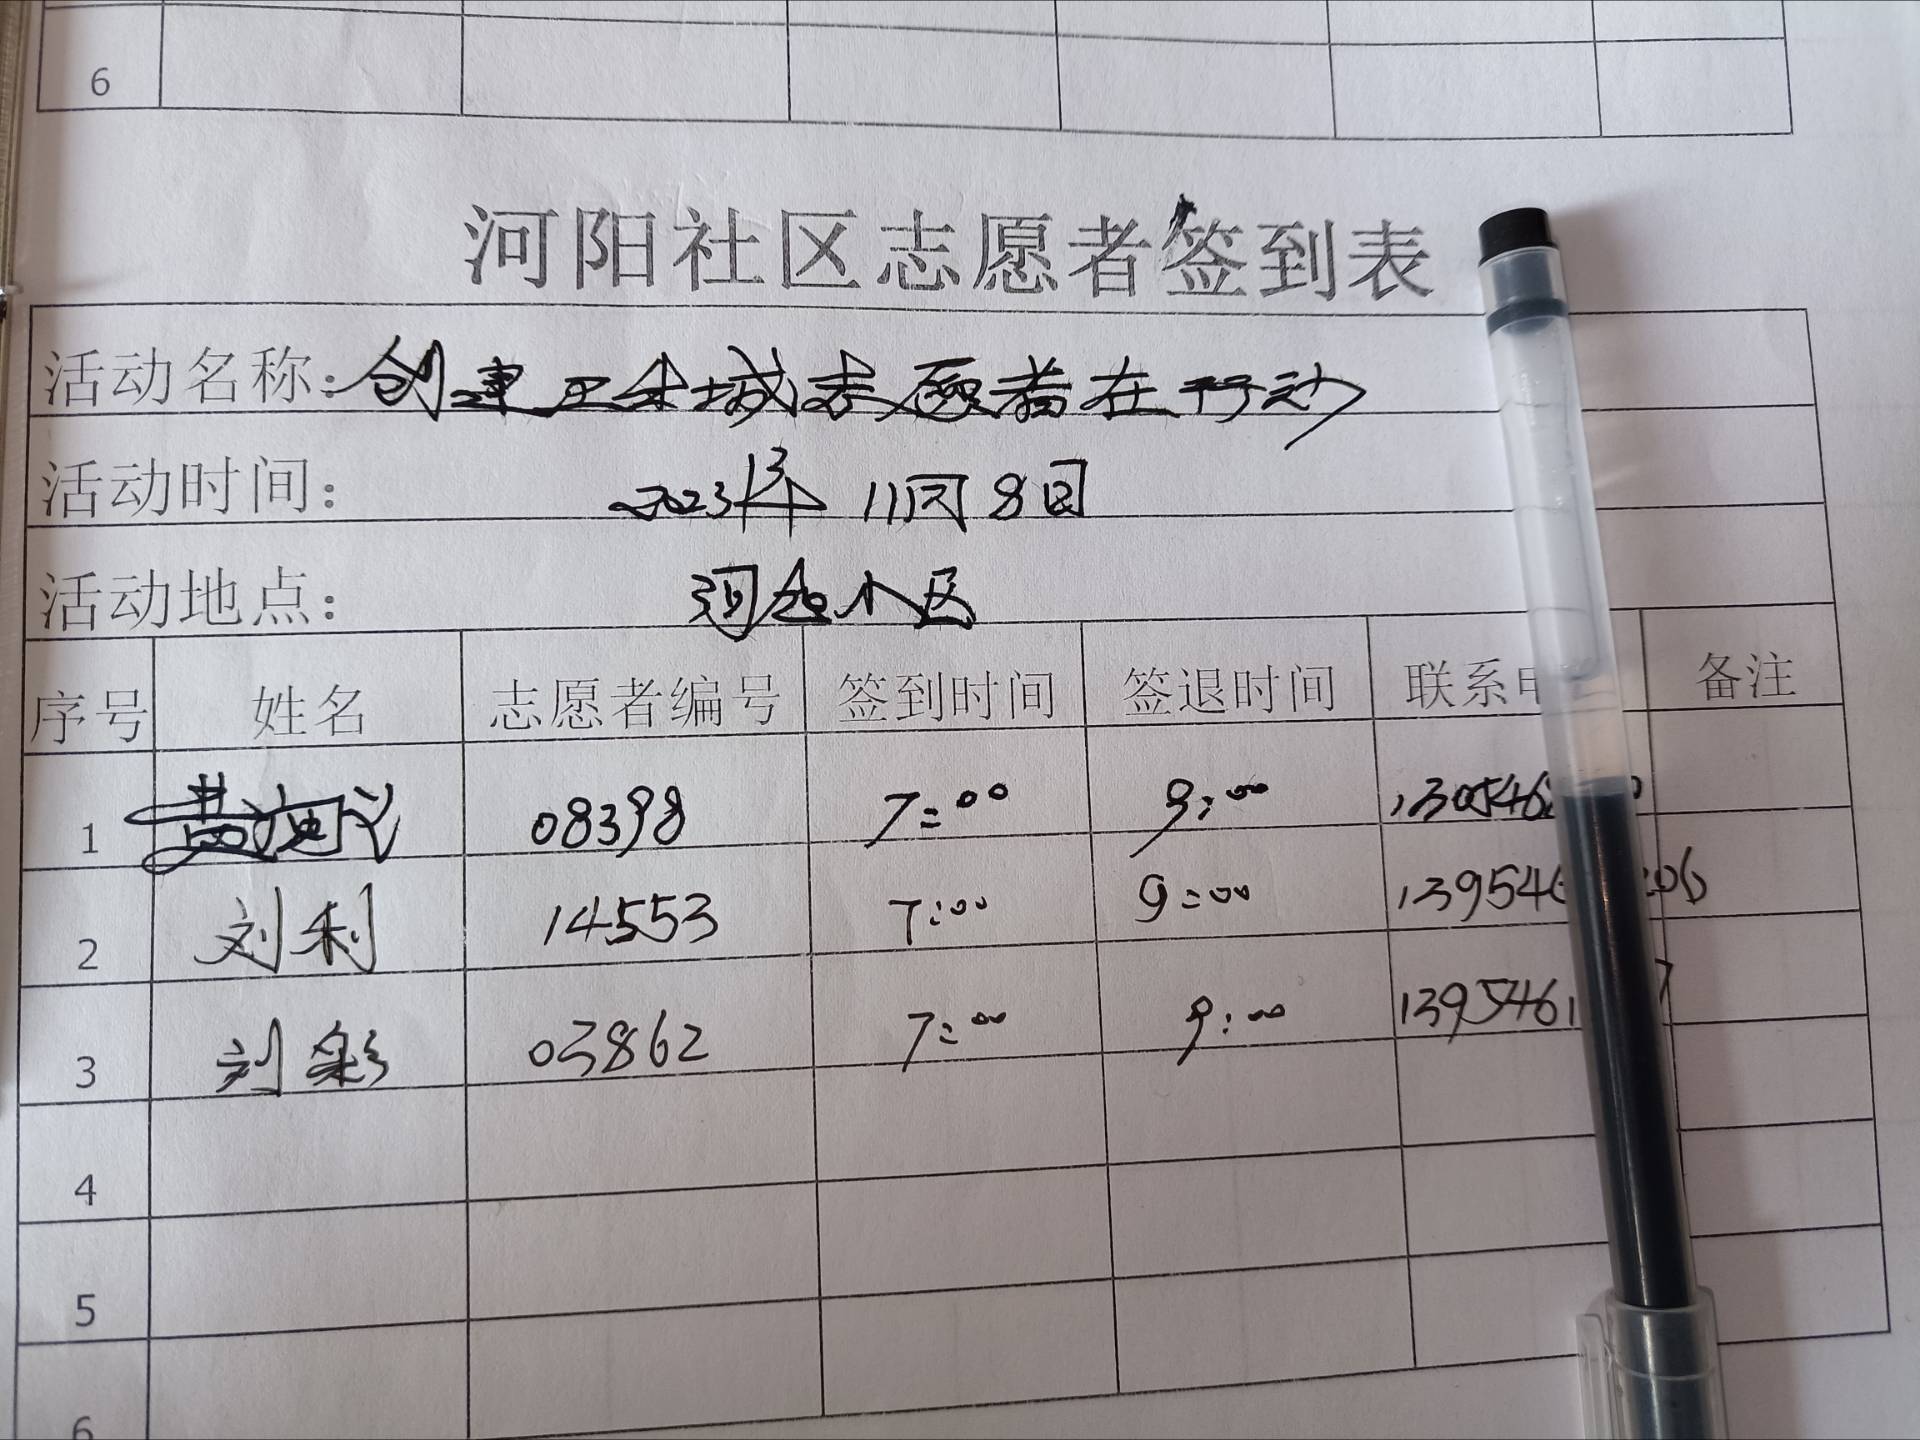 6
河阳社区志愿者签到表
活动名称：创建卫生城志愿者在行动
活动时间： 2023年11月8日
活动地点： 小区
序号 姓名 志愿者编号 签到时间 签退时间 联系 备注
1 08398 7:00 9:00
2 刘利 14553 7:00 9:00 139546 206
3 刘彩 03862 7:00 9:00 1395461 7
4
5
6